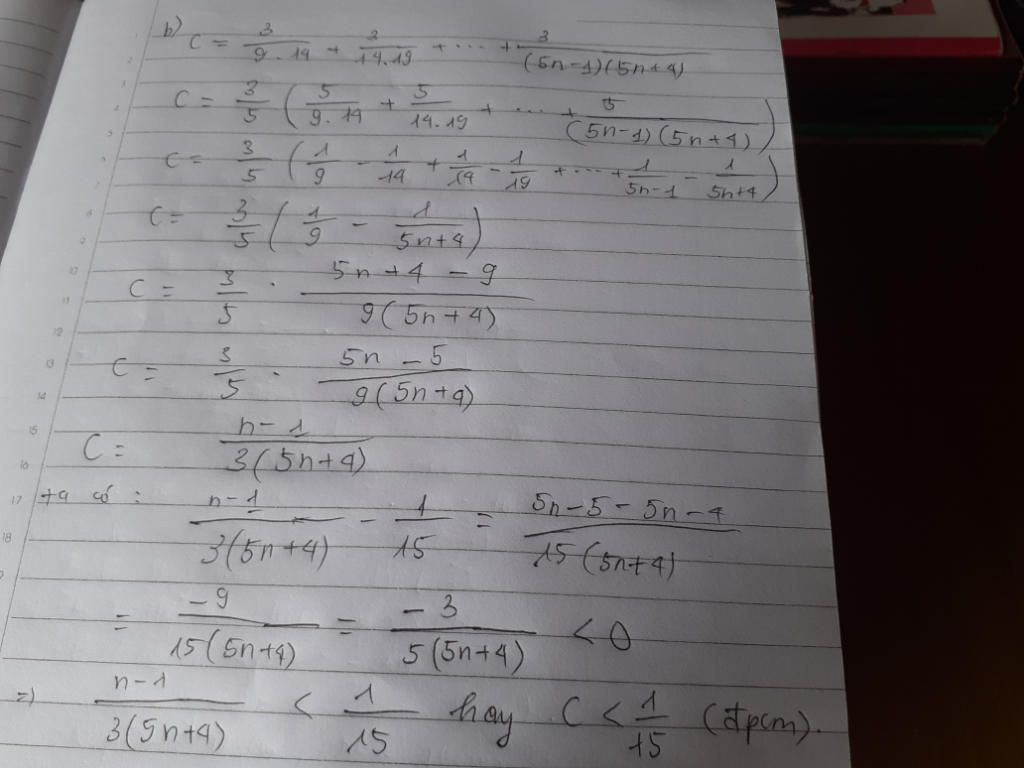 b) C = 3/(9.14) + 3/(14.19) + ... + 3/((5n-1)(5n+4))
C = 3/5 (5/(9.14) + 5/(14.19) + ... + 5/((5n-1)(5n+4)))
C = 3/5 (1/9 - 1/14 + 1/14 - 1/19 + ... + 1/(5n-1) - 1/(5n+4))
C = 3/5 (1/9 - 1/(5n+4))
C = 3/5 . (5n+4-9)/(9(5n+4))
C = 3/5 . (5n-5)/(9(5n+4))
C = (n-1)/(3(5n+4))
+a có : (n-1)/(3(5n+4)) - 1/15 = (5n-5-5n-4)/(15(5n+4))
= -9/(15(5n+4)) = -3/(5(5n+4)) < 0
=) (n-1)/(3(5n+4)) < 1/15 hay C < 1/15 (đpcm).